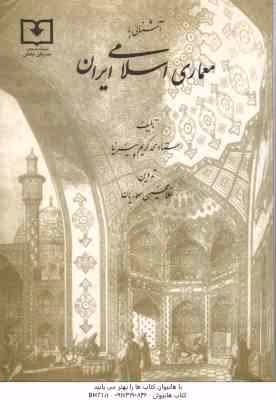 آشنائی با
معماری اسلامی ایران
تألیف
استاد محمد کریم پیرنیا
تدوین
غلامحسین معماریان
با هانیوان کتاب ها را بهتر می یابند
کتاب هانیوان